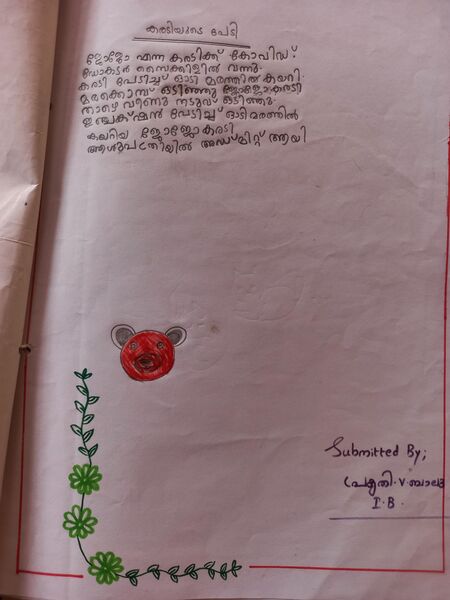 കരടിയുടെ പേടി
ജോജോ എന്ന കരടിക്ക് കോവിഡ്.
ഡോകടർ സൈക്കിളിൽ വന്നു.
കരടി പേടിച്ച് ഓടി മരത്തിൽ കയറി.
മരക്കൊമ്പ് ഒടിഞ്ഞു ജോജോകരടി
താഴെ വീണു നടുവ് ഒടിഞ്ഞു.
ഇഞ്ചക്ഷൻ പേടിച്ച് ഓടിമരത്തിൽ
കയറിയ ജോജോകരടി
ആശുപത്രിയിൽ അഡ്മിറ്റ് ആയി
Submitted By;
പ്രകൃതി.V.ബാബു
I.B.